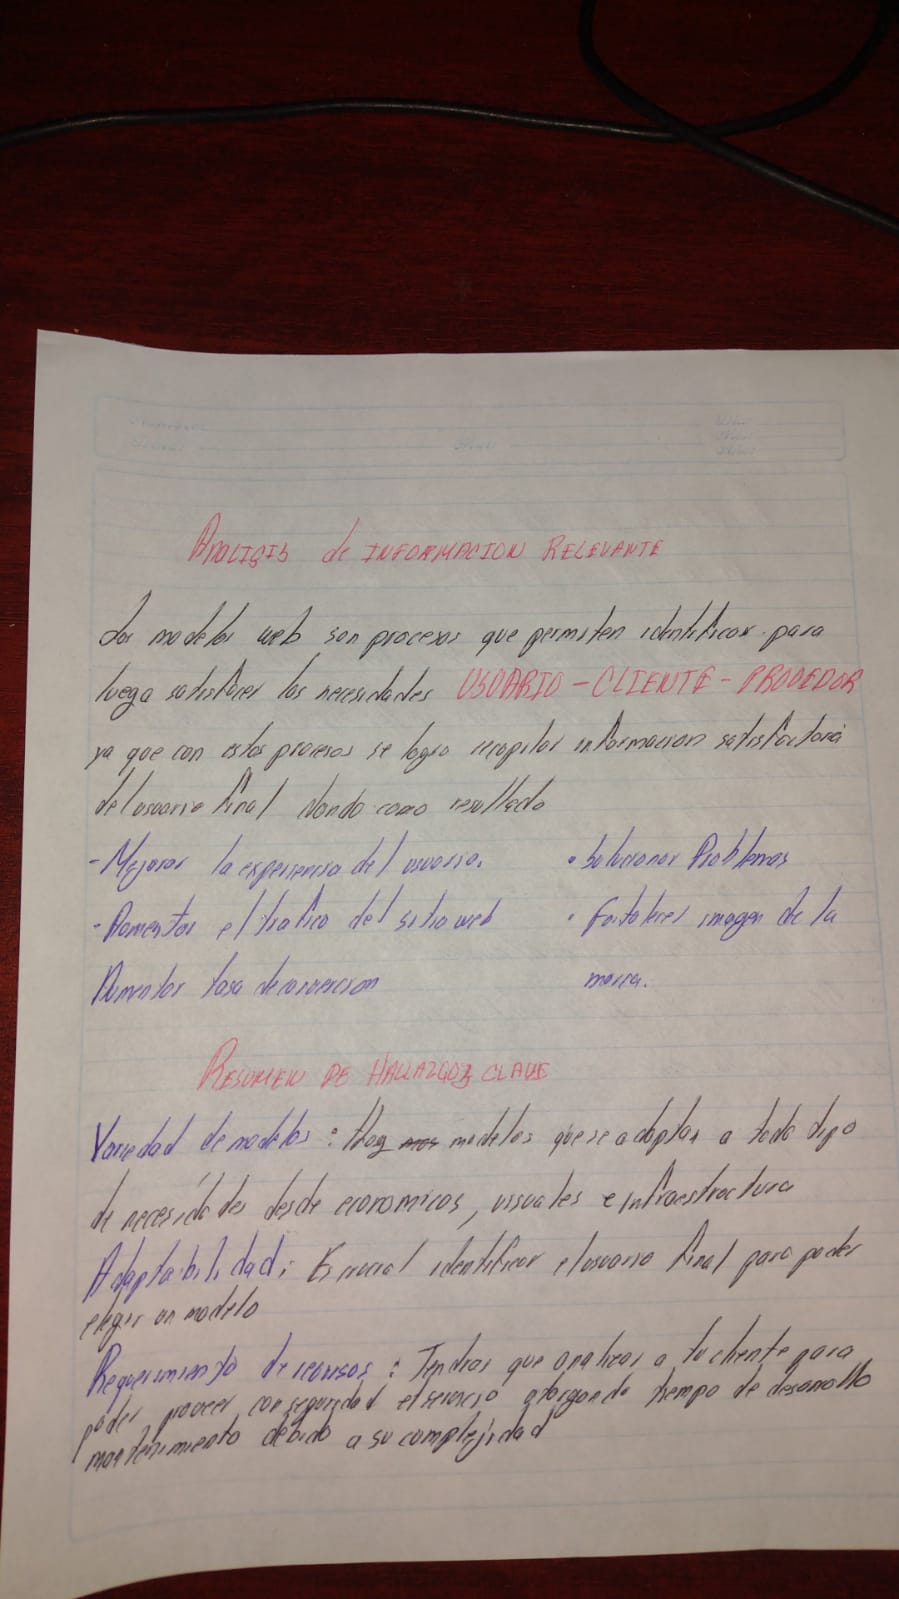 Analisis de INFORMACION RELEVANTE
Los modelos web son procesos que permiten identificar para
luego satisfacer las necesidades USUARIO - CLIENTE - PROVEDOR
ya que con estos procesos se logra recopilar informacion satisfactoria
del usuario final dando como resultado
- Mejorar la experiencia del usuario. • Solucionar Problemas
- Aumentar el trafico del sitio web • Fortalecer imagen de la
Aumentar tasa de conversion marca.
RESUMEN DE HALLAZGOZ CLAVE
Variedad de modelos : Hay modelos que se adaptan a todo tipo
de necesidades desde economicos, visuales e infraestructura
Adaptabilidad : Es crucial identificar el usuario final para poder
elegir un modelo
Requerimiento de recursos : Tendras que analizar a tu cliente para
poder proveer con seguridad el servicio otorgando tiempo de desarrollo
mantenimiento debido a su complejidad